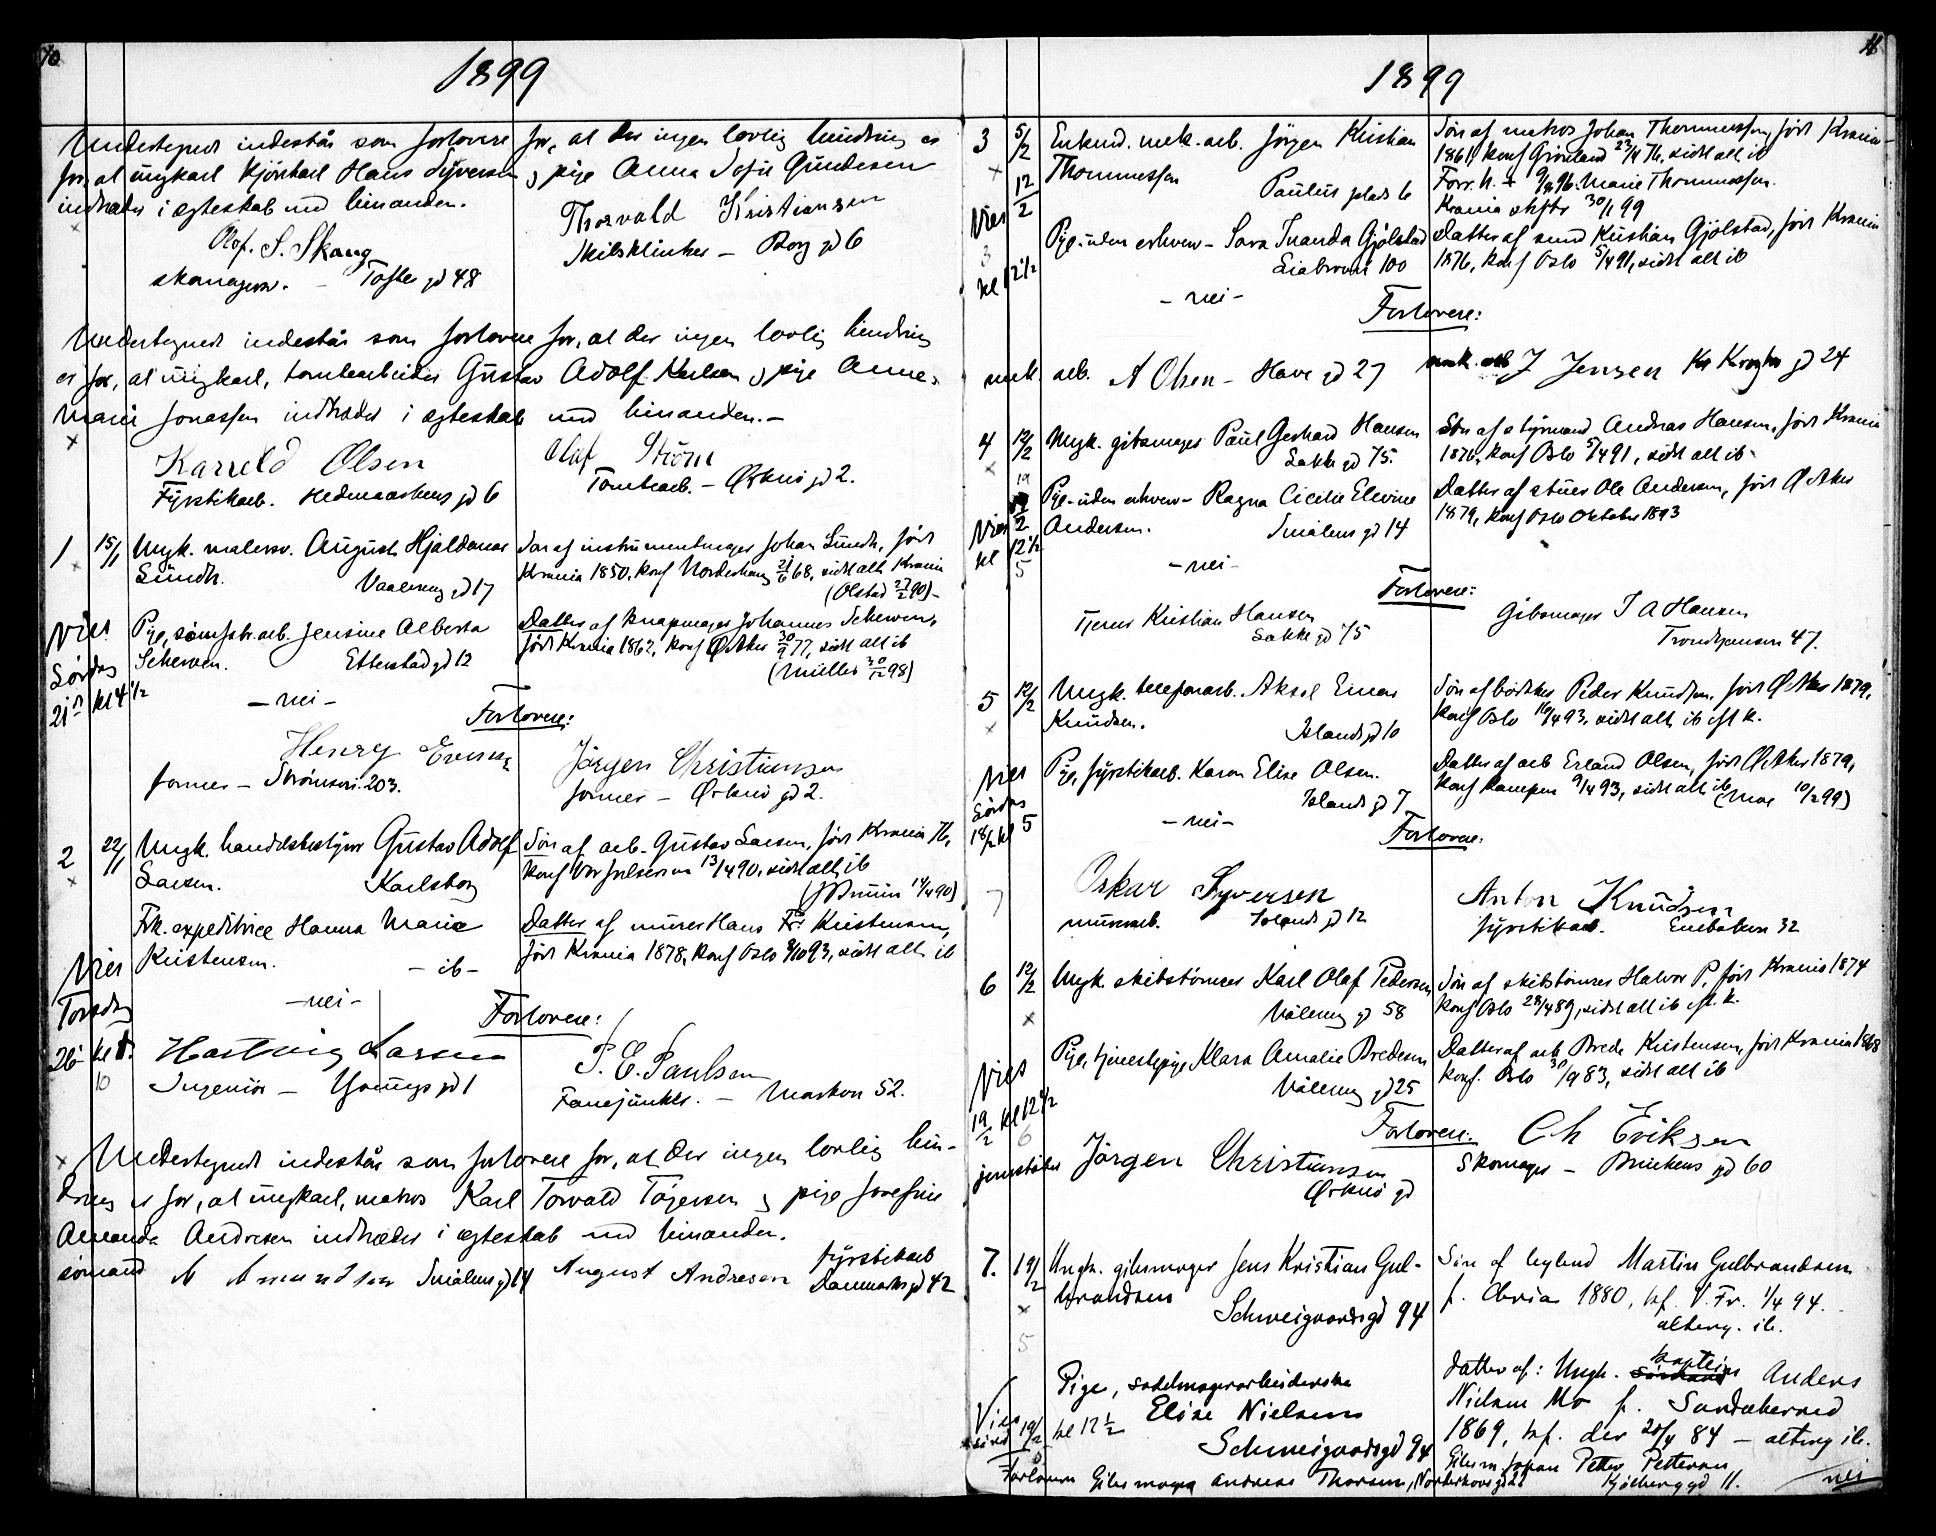 10
1899
Undertegnede indestår som forlovere for, at der ingen lovlig hindring er
for, at ungkarl Hans Syversen og pige Anna Sofie Gundersen
indtræder i ægteskab med hinanden.
Olof. S. Skaug
Thorvald Kristiansen
skomager. – Tofte gd 48
– Borg gd 6
Undertegnede indestår som forlovere for, at der ingen lovlig hindring
er for, at ungkarl, tomtearbeider Gustav Adolf Karlsen og pige Anne
Marie Jonassen indtræder i ægteskab med hinanden.–
Olsen
Olaf Ström
Fyrstikarb. Hedmarkens gd 6
Tomtearb. – Ørknö gd 2.
1 15/1 Ungk. malersv. August Hjaldemar
Sundh. Vaalereng gd 17
Søn af instrumentmager Johan Sundh, født
Krania 1850, konf Norderhaug 21/6 68, sidst alt. Krania
(Olstad 27/2 90)–
Vies
Pige, Jensine Alberta
Scherven. Etterstad gd 12
Datter af knapmager Johannes Scherven,
født Krania 1862, konf Ø. Aker 30/9 77, sidst alt ib
(Müller 30/12 98)
Lördag
21 kl 4 1/2
– nei –
Forlovere:
Henry
former – Strömsv. 203.
Jörgen Christiansen
former – Ørknö gd 2.
2 22/1 Ungk. handelsbestyrer Gustav Adolf
Larsen. Karlsborg
Søn af arb. Gustav Larsen, født Krania 76,
konf Vor frelserson 13/4 90, sidst alt ib
(J Bruun 14/4 90)
Frk. expeditrice Hanna Marie
Kristensen. – ib –
Datter af murer Hans Fr. Kristensen,
født Krania 1878, konf Oslo 8/10 93, sidst alt ib
Vies
Torsdag
26 kl
10
– nei –
Forlovere:
Hartvig Larsen
Ingeniör – Youngs gd 1
P. E. Paulsen
Fanejunker. – Markvn 52.
Undertegnede indestår som forlovere for, at der ingen lovlig hin-
dring er for, at ungkarl, matros Karl Torvald Törjersen og pige Josefine
Amanda Andresen indtræder i ægteskab med hinanden.
sömand A Amundsen Smålens gd 14
August Andresen
fyrstikarb
Danmarks gd 42
11
1899
3 5/2 Enkmd. mek. arb. Jörgen Kristian
Thommessen Paulus plads 6
Søn af matros Johan Thommessen, født Krania
1861, konf Grönland 23/4 76, sidst alt ib
Forr. h. + 9/8 96. Marie Thommessen.
Krania skifter 30/1 99
12/2
Vies
3
kl 12 1/2
Pige uden erhverv – Sara Gjölstad
Liabrovn 100
Datter af smed Kristian Gjölstad, født Krania
1876, konf Oslo 5/4 91, sidst alt ib
– nei –
Forlovere:
mek. arb. A Olsen – Have gd 27
mek. arb J Jensen Kr Kroghs gd 24
4 12/2 Ungk. gibsmager Paul Gerhard Hansen
Lakke gd 75.
Søn af styrmand Andreas Hansen, født Krania
1876, konf Oslo 5/4 91, sidst alt ib.
19
2
Vies
kl 12 1/2
5
Pige uden erhverv – Ragna Cicilie Elevine
Andersen. Smålens gd 14
Datter af stuer Ole Andersen, født Ø Aker
1879, konf Oslo Oktober 1893
– nei –
Forlovere:
Tjener Kristian Hansen
Lakke gd 75
Gibsmager J A Hansen
Trondhjemsvn 47.
5 12/2 Ungk. telefonarb. Aksel Einar
Knudsen. Islands gd 10
Søn af bödker Peder Knudsen, født Ø Aker 1879,
konf Oslo 16/4 93, sidst alt ib
Vies
Lördag
18/2 kl 5
Pige, fyrstikarb. Karen Elise Olsen.
Islands gd 7
Datter af arb Erland Olsen, født Ø Aker 1879,
konf Kampen 9/4 93, sidst alt ib (Moe 10/2 99)
– nei –
Forlovere:
Oskar Syversen
murarb. Islands gd 12
Anton Knudsen
fyrstikarb. Enebakvn 32
6 12/2 Ungk. skibstömrer Karl Olaf Pedersen
Vålereng gd 58
Søn af skibstömrer Halvor P, født Krania 1874
konf Oslo 28/4 89, sidst alt ib
Pige, tjenestepige Klara Amalie Bredesen
Vålereng gd 25
Datter af arb Brede Kristensen, født Krania 1868
konf. Oslo 30/9 83, sidst alt ib
Vies
19/2 kl 12 1/2
6
Forlovere:
jernstöber Jörgen Christiansen
Ørknö gd
Ch Eriksen
Skomager – Munkens gd 60
7. 19/2 Ungk. gibsmager Jens Kristian Gul-
brandsen
Schweigaardsgd 94
Søn af Martin Gulbrandsen
f. Chria 1880, kf. V. Fr. 1/4 94.
altærg. ib.
5
Pige, sadelmagerarbeiderske
Elise Nielsen
Schweigaardsgd 94
Datter af: Ungk. kaptein Anders
Nielsen Mo f. Sandeherred
1869, kf. der 20/4 84 – alterg ib.
Vies
19/2
kl 12 1/2
Forlovere Gibsmager Andreas Thorsen,
Gibsm. Johan Petter Pettersen
Kjölberggd 11.
nei